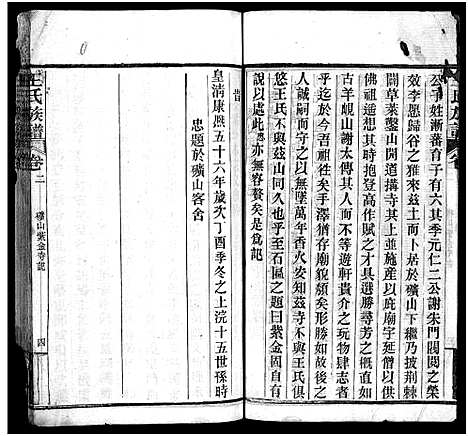 王氏族譜 卷
公子姓漸蕃育子有六其季元仁二公謝朱門閥閱之榮
效李愿歸谷之雅來茲土而卜居於礦山下繼乃披荆棘
闢草萊鑿山開道搆寺其上並施産以庇廟宇延僧以供
佛祖於此真時抱登高作具不過選勝尋芳之概直如
古羊峴山謝太傅其人而不等遊軒貴介之玩物肆志者
比乎迄於今吾祖徂矣手澤猶存廟貌猶故矣形勝如故後之
人誠嗣而守之以無墜萬年香火安知茲寺不與王氏俱
悠王氏不與山同久也乎至石區之題曰紫金固自有
說以述此愚亦無容贅矣是爲記
旹
皇清康熙五十六年歲次丁酉季冬之上浣十五世孫時
忠題於礦山客舍
王氏族譜 卷二 礦山紫金寺記 四